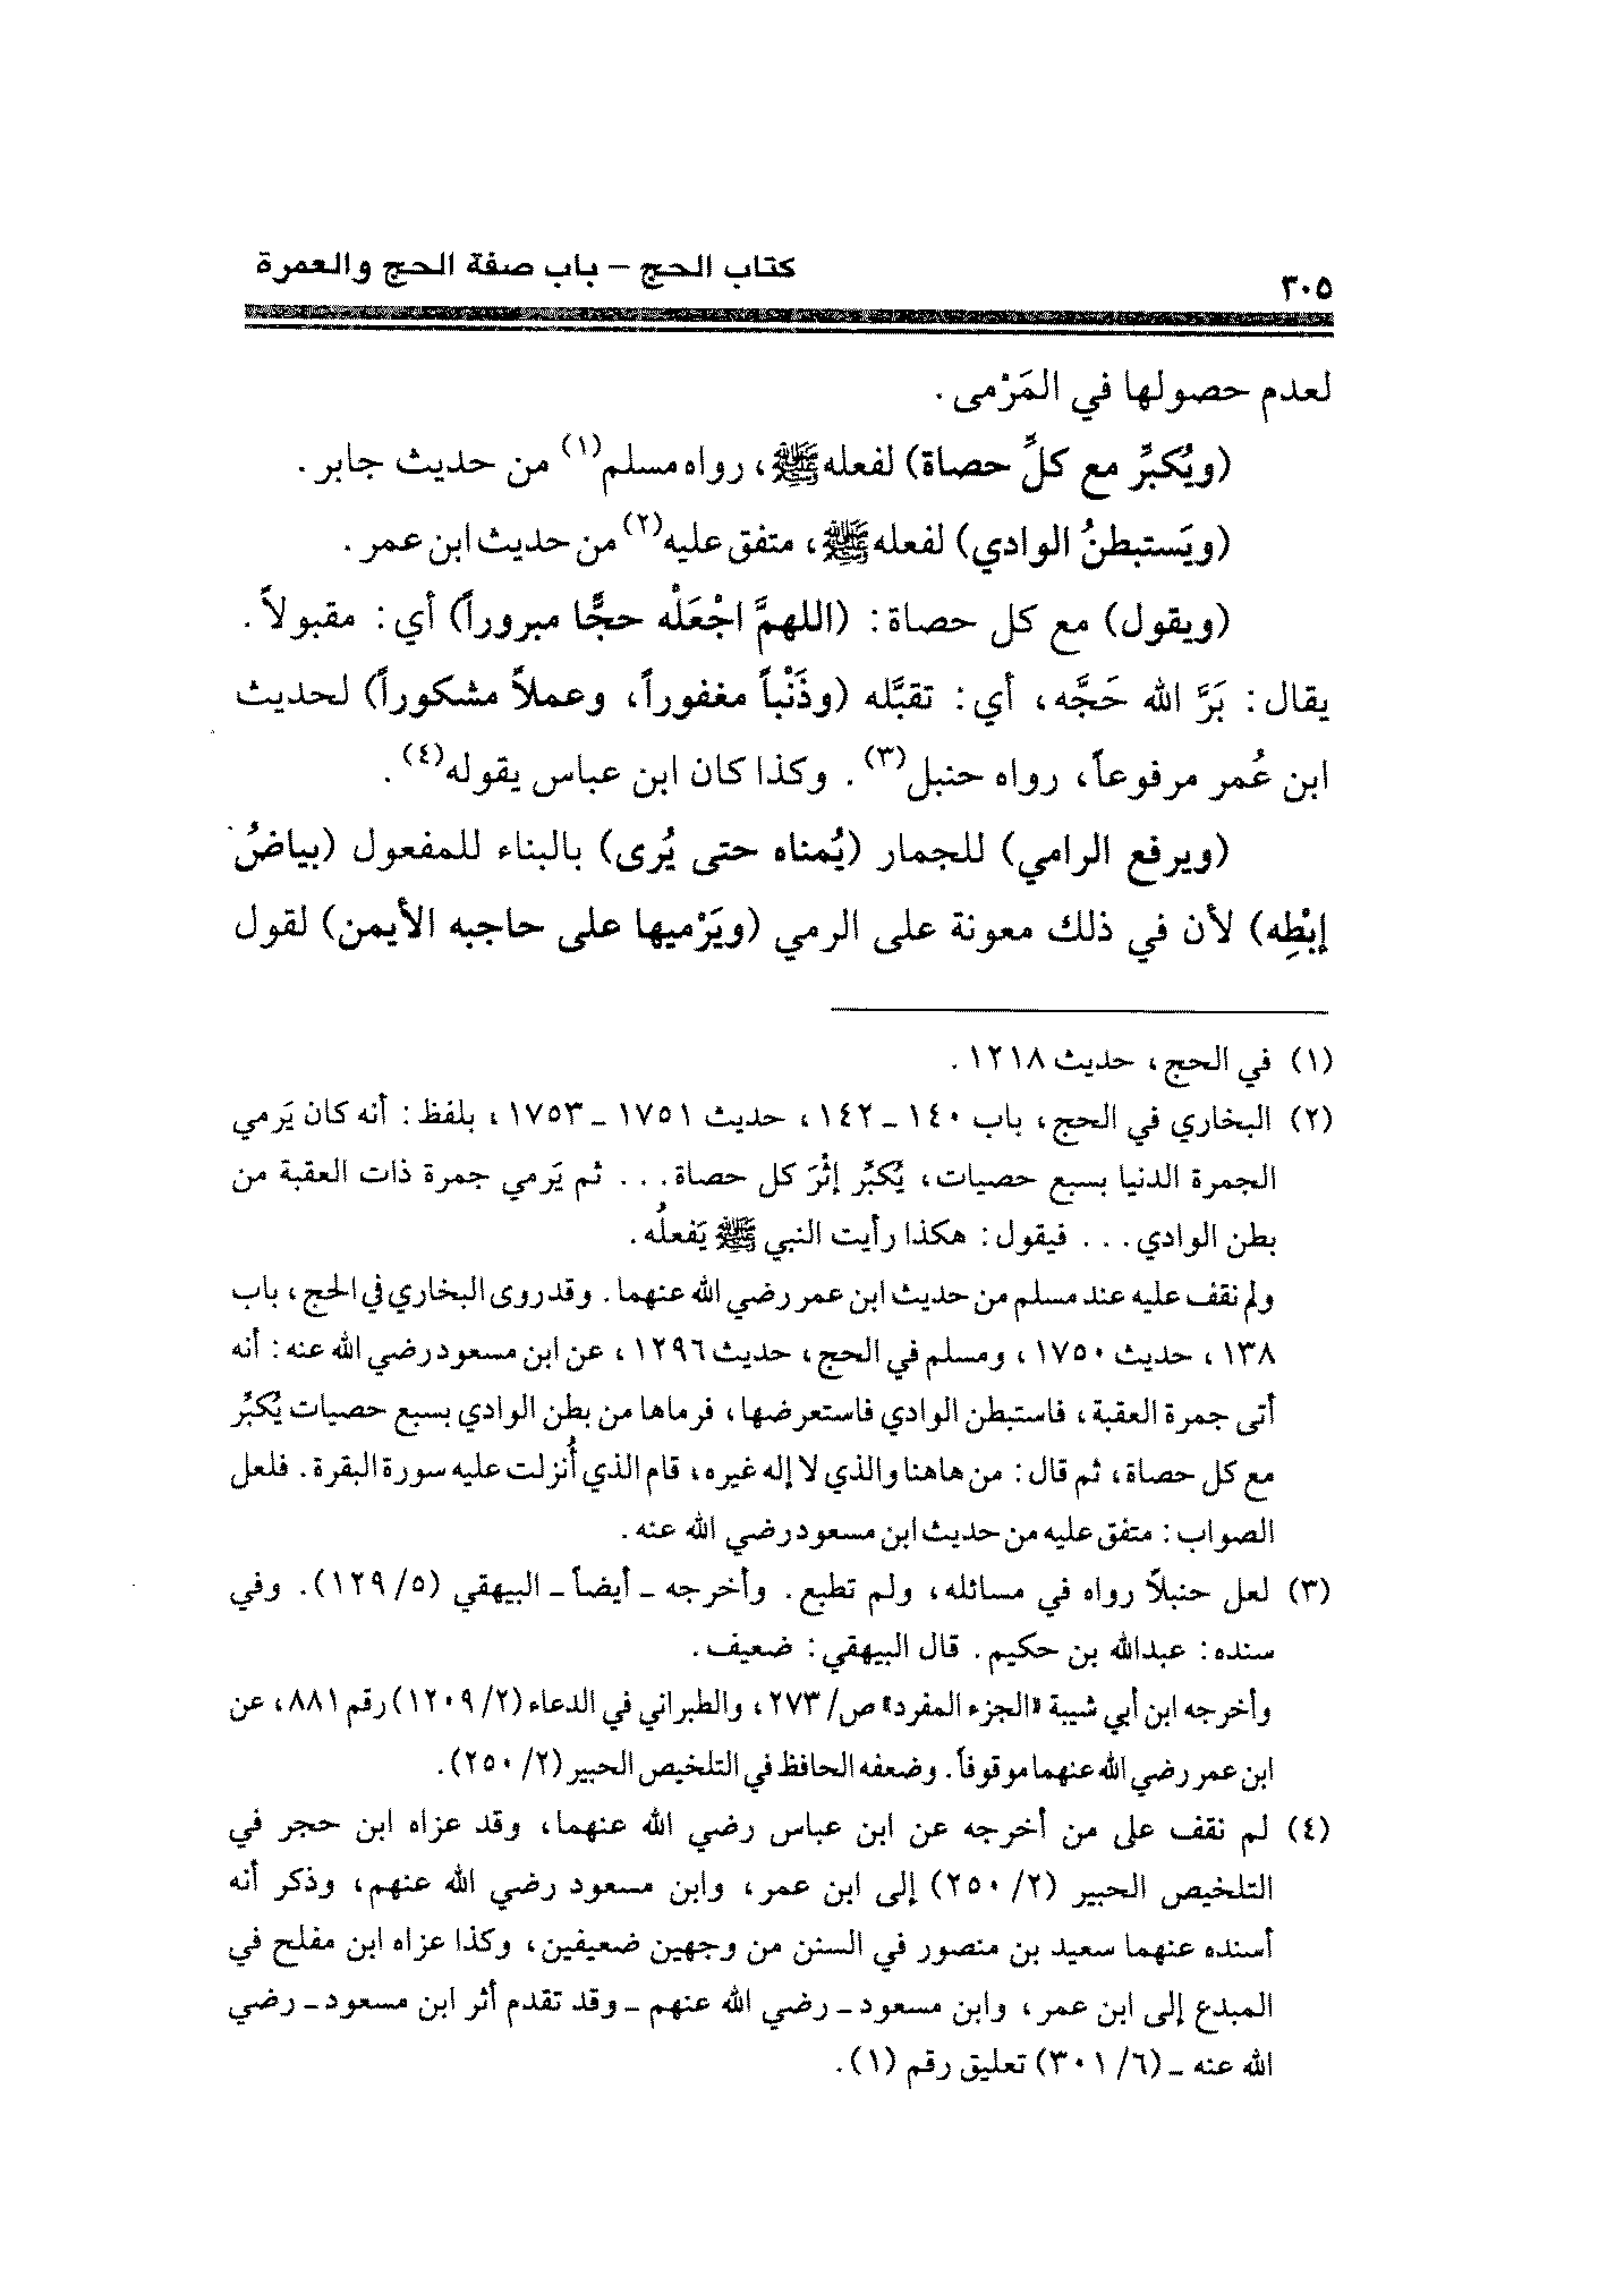 كتاب الحج – باب صفة الحج والعمرة
٣٠٥
لعدم حصولها في المَرْمى .
(ويُكبِّر مع كلِّ حصاة) لفعله ﷺ، رواه مسلم(١) من حديث جابر .
(ويَستبطنُ الوادي) لفعله ﷺ، متفق عليه(٢) من حديث ابن عمر .
(ويقول) مع كل حصاة: (اللهمَّ اجْعَلْه حجًّا مبروراً) أي: مقبولاً .
يقال: بَرَّ الله حَجَّه، أي: تقبَّله (وذَنْباً مغفوراً، وعملاً مشكوراً) لحديث
ابن عُمر مرفوعاً، رواه حنبل(٣) . وكذا كان ابن عباس يقوله(٤) .
(ويرفع الرامي) للجمار (يُمناه حتى يُرى) بالبناء للمفعول (بياضُ
إبْطِه) لأن في ذلك معونة على الرمي (ويَرْميها على حاجبه الأيمن) لقول
(١) في الحج، حديث ١٢١٨ .
(٢) البخاري في الحج، باب ١٤٠ ـ ١٤٢، حديث ١٧٥١ ـ ١٧٥٣، بلفظ: أنه كان يَرمي
الجمرة الدنيا بسبع حصيات، يُكبِّر إثْرَ كل حصاة... ثم يَرمي جمرة ذات العقبة من
بطن الوادي... فيقول: هكذا رأيت النبي ﷺ يَفعلُه.
ولم نقف عليه عند مسلم من حديث ابن عمر رضي الله عنهما. وقد روى البخاري في الحج، باب
١٣٨، حديث ١٧٥٠، ومسلم في الحج، حديث ١٢٩٦، عن ابن مسعود رضي الله عنه: أنه
أتى جمرة العقبة، فاستبطن الوادي فاستعرضها، فرماها من بطن الوادي بسبع حصيات يُكبِّر
مع كل حصاة، ثم قال: من هاهنا والذي لا إله غيره، قام الذي أُنزلت عليه سورة البقرة. فلعل
الصواب: متفق عليه من حديث ابن مسعود رضي الله عنه.
(٣) لعل حنبلاً رواه في مسائله، ولم تطبع. وأخرجه ـ أيضاً ـ البيهقي (٥/ ١٢٩). وفي
سنده: عبدالله بن حكيم. قال البيهقي: ضعيف.
وأخرجه ابن أبي شيبة «الجزء المفرد» ص/ ٢٧٣، والطبراني في الدعاء (٢/ ١٢٠٩) رقم ٨٨١، عن
ابن عمر رضي الله عنهما موقوفاً. وضعفه الحافظ في التلخيص الحبير (٢/ ٢٥٠).
(٤) لم نقف على من أخرجه عن ابن عباس رضي الله عنهما، وقد عزاه ابن حجر في
التلخيص الحبير (٢/ ٢٥٠) إلى ابن عمر، وابن مسعود رضي الله عنهم، وذكر أنه
أسنده عنهما سعيد بن منصور في السنن من وجهين ضعيفين، وكذا عزاه ابن مفلح في
المبدع إلى ابن عمر، وابن مسعود ـ رضي الله عنهم ـ وقد تقدم أثر ابن مسعود ـ رضي
الله عنه ـ (٦/ ٣٠١) تعليق رقم (١).